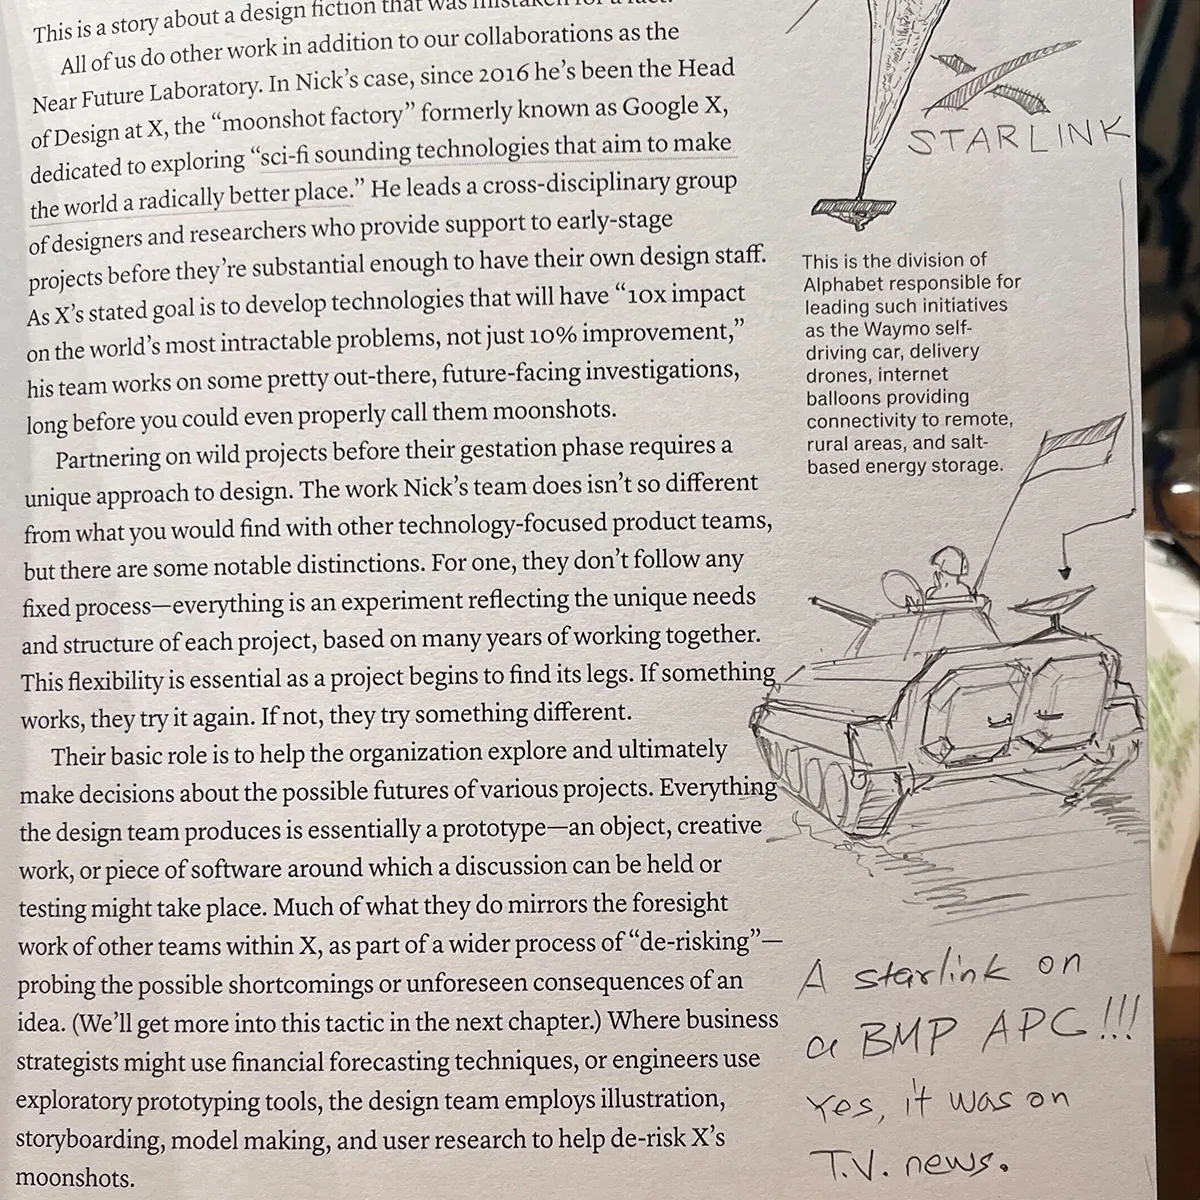 This is a story about a design fiction that was mistaken for a fact.
All of us do other work in addition to our collaborations as the
Near Future Laboratory. In Nick's case, since 2016 he's been the Head
of Design at X, the “moonshot factory” formerly known as Google X,
dedicated to exploring “sci-fi sounding technologies that aim to make
the world a radically better place.” He leads a cross-disciplinary group
of designers and researchers who provide support to early-stage
projects before they're substantial enough to have their own design staff.
As X's stated goal is to develop technologies that will have “10x impact
on the world's most intractable problems, not just 10% improvement,”
his team works on some pretty out-there, future-facing investigations,
long before you could even properly call them moonshots.
Partnering on wild projects before their gestation phase requires a
unique approach to design. The work Nick's team does isn't so different
from what you would find with other technology-focused product teams,
but there are some notable distinctions. For one, they don't follow any
fixed process—everything is an experiment reflecting the unique needs
and structure of each project, based on many years of working together.
This flexibility is essential as a project begins to find its legs. If something
works, they try it again. If not, they try something different.
Their basic role is to help the organization explore and ultimately
make decisions about the possible futures of various projects. Everything
the design team produces is essentially a prototype—an object, creative
work, or piece of software around which a discussion can be held or
testing might take place. Much of what they do mirrors the foresight
work of other teams within X, as part of a wider process of “de-risking”—
probing the possible shortcomings or unforeseen consequences of an
idea. (We'll get more into this tactic in the next chapter.) Where business
strategists might use financial forecasting techniques, or engineers use
exploratory prototyping tools, the design team employs illustration,
storyboarding, model making, and user research to help de-risk X's
moonshots.
STARLINK
This is the division of
Alphabet responsible for
leading such initiatives
as the Waymo self-
driving car, delivery
drones, internet
balloons providing
connectivity to remote,
rural areas, and salt-
based energy storage.
A starlink on
a BMP APC!!!
Yes, it was on
T.V. news.